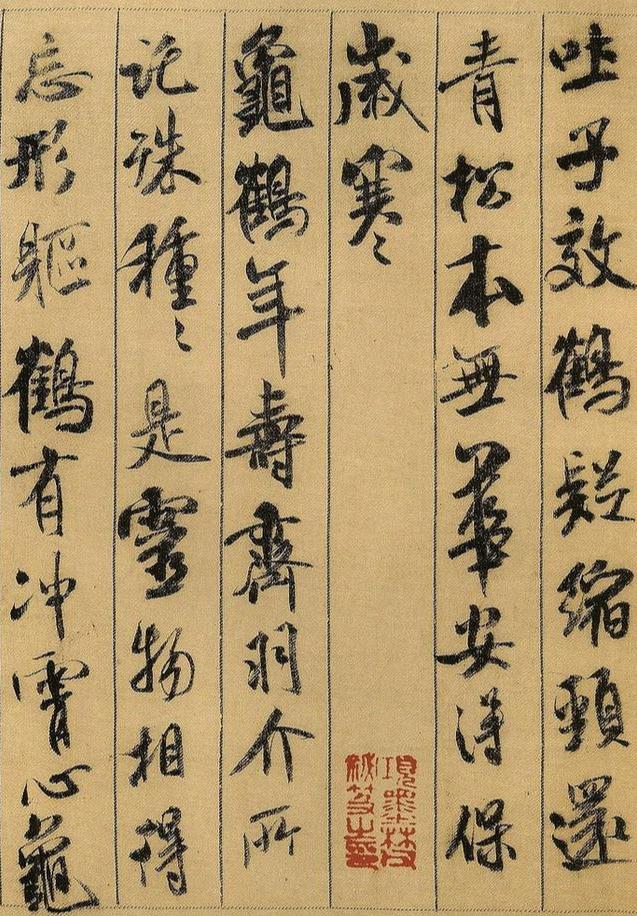 吐子效鶴疑縮頸還
青松本無華安得保
歲寒
項墨林父
祕笈之印
龜鶴年壽齊羽介所
託殊種〻是靈物相得
忘形軀鶴有冲霄心龜